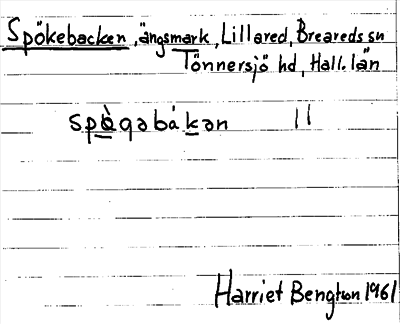 Spökebacken, ängsmark, Lillared, Breareds sn
Tönnersjö hd, Hall. län
spö̀qəbákən 11
Harriet Bengtson 1961